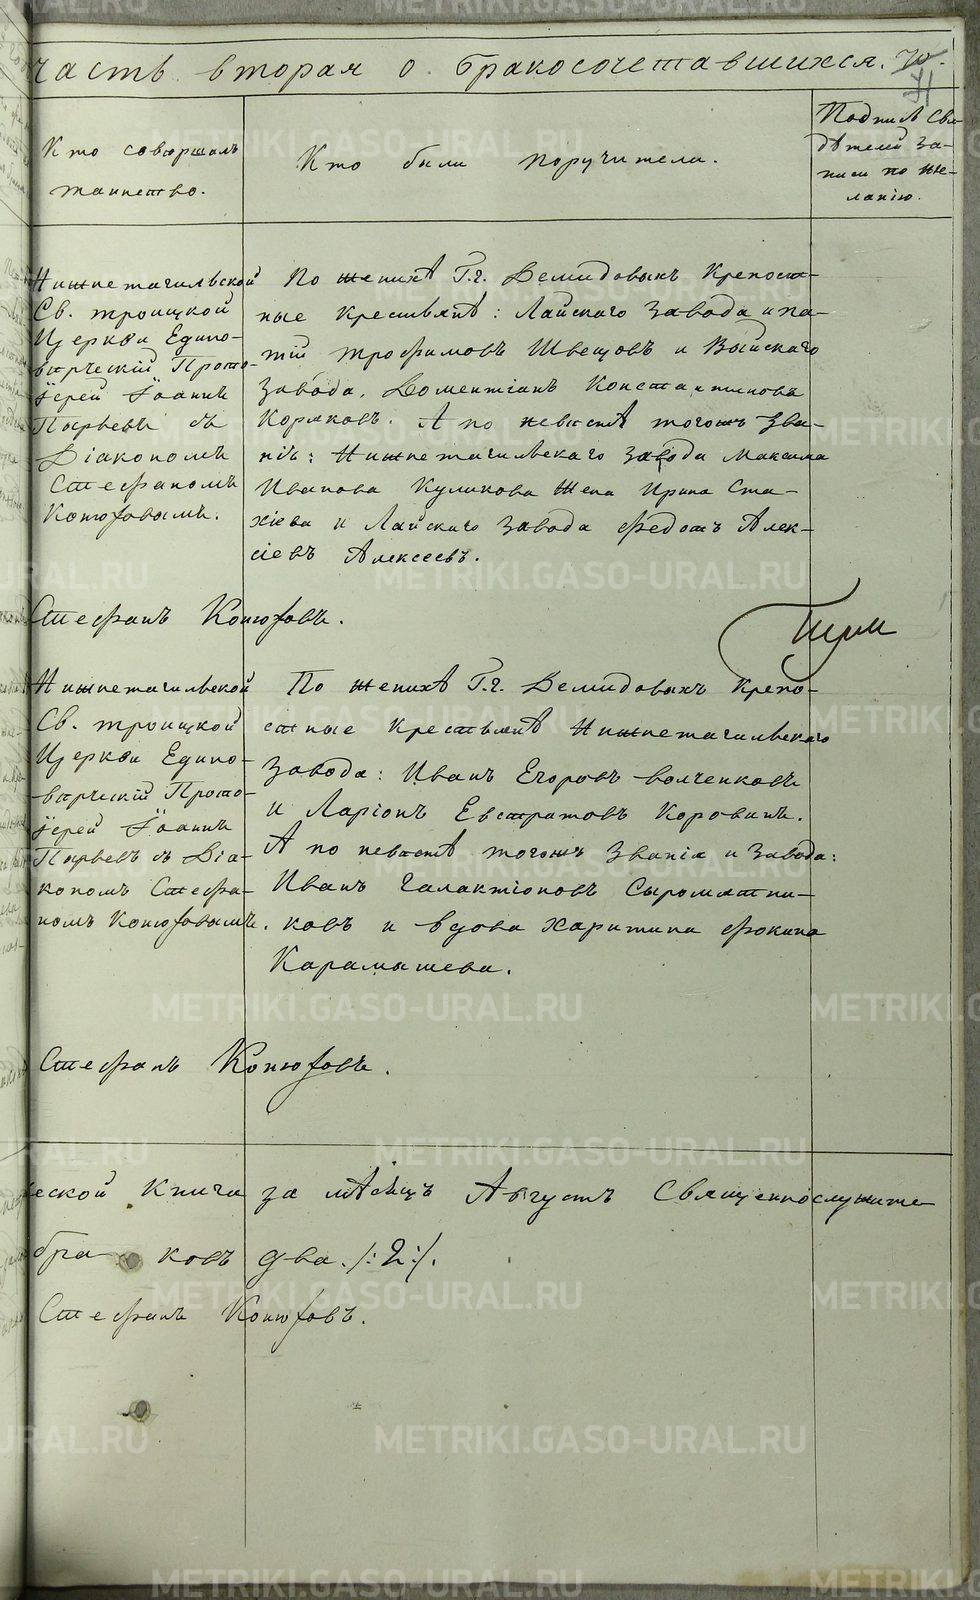 Часть вторая о бракосочетавшихся.
71
Кто совершалъ
таинство.
Кто были поручители.
Подпись сви-
дѣтелей за-
писи по же-
ланію.
Нижнетагильской
Св. троицкой
Церкви Едино-
вѣрческій Прото-
іерей Іоаннъ
Пырьевъ съ
Діакономъ
Стефаномъ
Конюховымъ.
По женихѣ Г.г. Демидовыхъ Крепост-
ные крестьянѣ: Лайскаго завода ипа-
тій трофимовъ Швецовъ и Выйскаго
завода, Дометіанъ Константиновъ
Коряковъ. А по невѣстѣ тогожъ зва-
нія: Нижнетагильскаго завода Максима
Иванова Куликова Жена Ирина Ста-
хіева и Лайскаго завода федотъ Алек-
сіевъ Алексеевъ.
Стефанъ Конюховъ.
Нижнетагильской
Св. троицкой
Церкви Едино-
вѣрческій Прото-
іерей Іоаннъ
Пырьевъ съ Діа-
кономъ Стефа-
номъ Конюховымъ.
По женихѣ Г.г. Демидовыхъ крепо-
стные крестьянѣ Нижнетагильскаго
завода: Иванъ Егоровъ волченковъ
и Ларіонъ Евстратовъ Коровинъ.
А по невѣстѣ тогожъ званія и завода:
Иванъ Галактіоновъ Сыромятни-
ковъ и вдова харитина фокина
Карамышева.
Стефанъ Конюховъ.
еской книги за мѣсяцъ Августъ Священнослужите
браковъ два. /:2:/.
Стефанъ Конюховъ.
METRIKI.GASO-URAL.RU